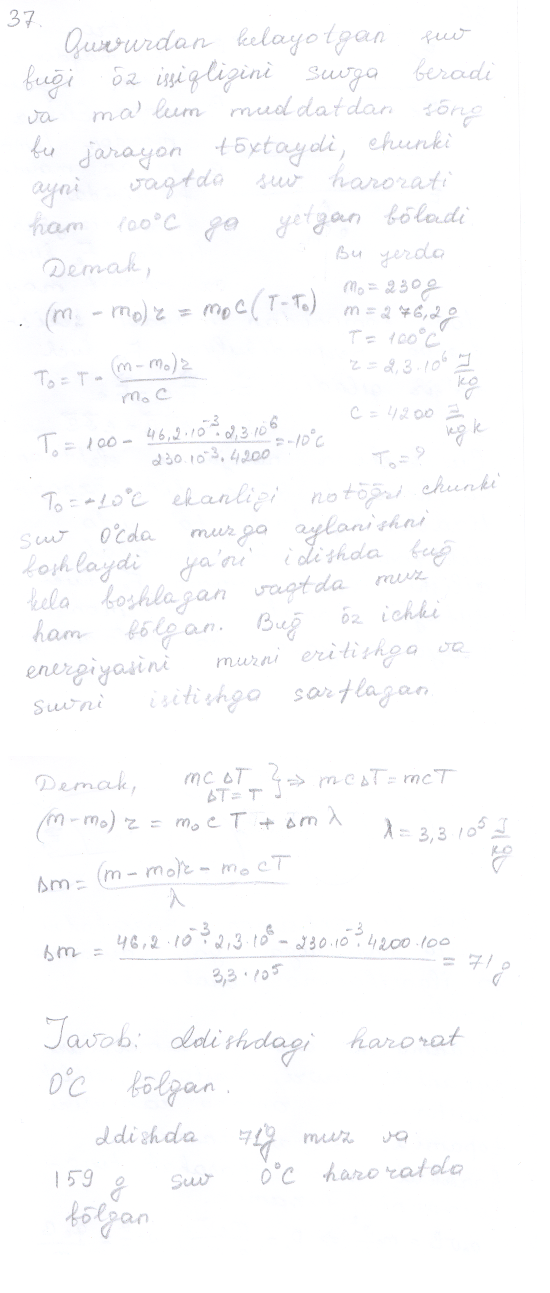 37.
Quvurdan kelayotgan suv
buğı öz issiqligini suvga beradi
va ma'lum muddatdan söng
bu jarayon töxtaydi, chunki
ayni vaqtda suv harorati
ham 100°C ga yetgan böladi
Demak,
(m - m₀)r = m₀c(T-T₀)
T₀ = T - (m-m₀)r / m₀c
T₀ = 100 - 46,2·10⁻³·2,3·10⁶ / 230·10⁻³·4200 = -10°C
Bu yerda
m₀ = 230g
m = 276,2g
T = 100°C
r = 2,3·10⁶ J/kg
c = 4200 J/kg k
T₀ = ?
T₀ = -10°C ekanligi notöğri chunki
suv 0°C da muzga aylanishni
boshlaydi ya'ni idishda buğ
kela boshlagan vaqtda muz
ham bölgan. Buğ öz ichki
energiyasini muzni eritishga va
suvni isitishga sarflagan
Demak, mc ΔT
ΔT = T } ⇒ mcΔT = mcT
(m-m₀)r = m₀cT + Δm λ
λ = 3,3 10⁵ J/kg
Δm = (m-m₀)r - m₀cT / λ
Δm = 46,2·10⁻³·2,3·10⁶ - 230·10⁻³·4200·100 / 3,3·10⁵ = 71g
Javob: Idishdagi harorat
0°C bölgan.
Idishda 71g muz va
159 g suv 0°C haroratda
bölgan